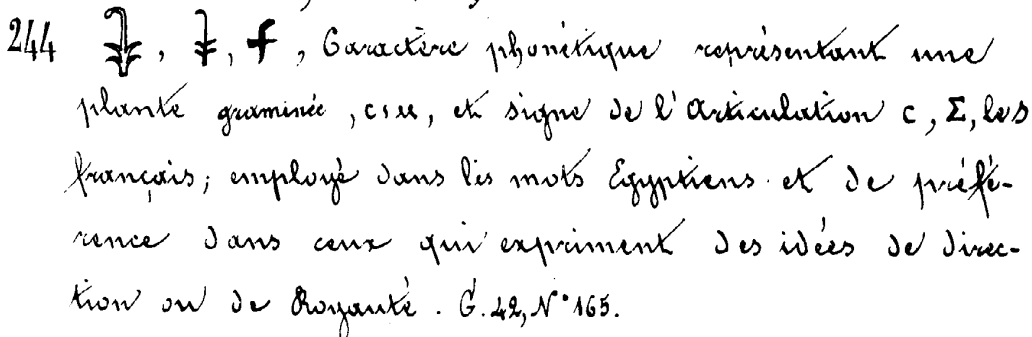 244 𓇓, 𓇓, , Caractère phonétique représentant une
plante graminée, ⲥⲓⲙ, et signe de l'Articulation ⲥ, Σ, les
français; employé dans les mots Egyptiens et de préfé-
rence dans ceux qui expriment des idées de direc-
tion ou de Royauté. G. 42, N° 165.